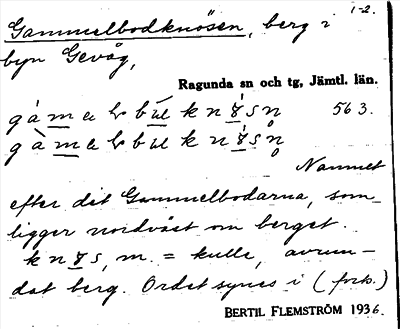 1-2.
Gammelbodknösen, berg i
byn Gevåg,
Ragunda sn och tg, Jämtl. län.
563.
Namnet
efter det Gammelbodarna, som
ligger nordväst om berget.
m. = kulle, avrun-
dat berg. Ordet synes i (forts.)
BERTIL FLEMSTRÖM 1936.